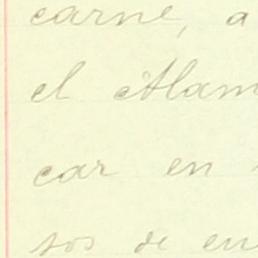 carne, a
el Alam
car en
sos de en